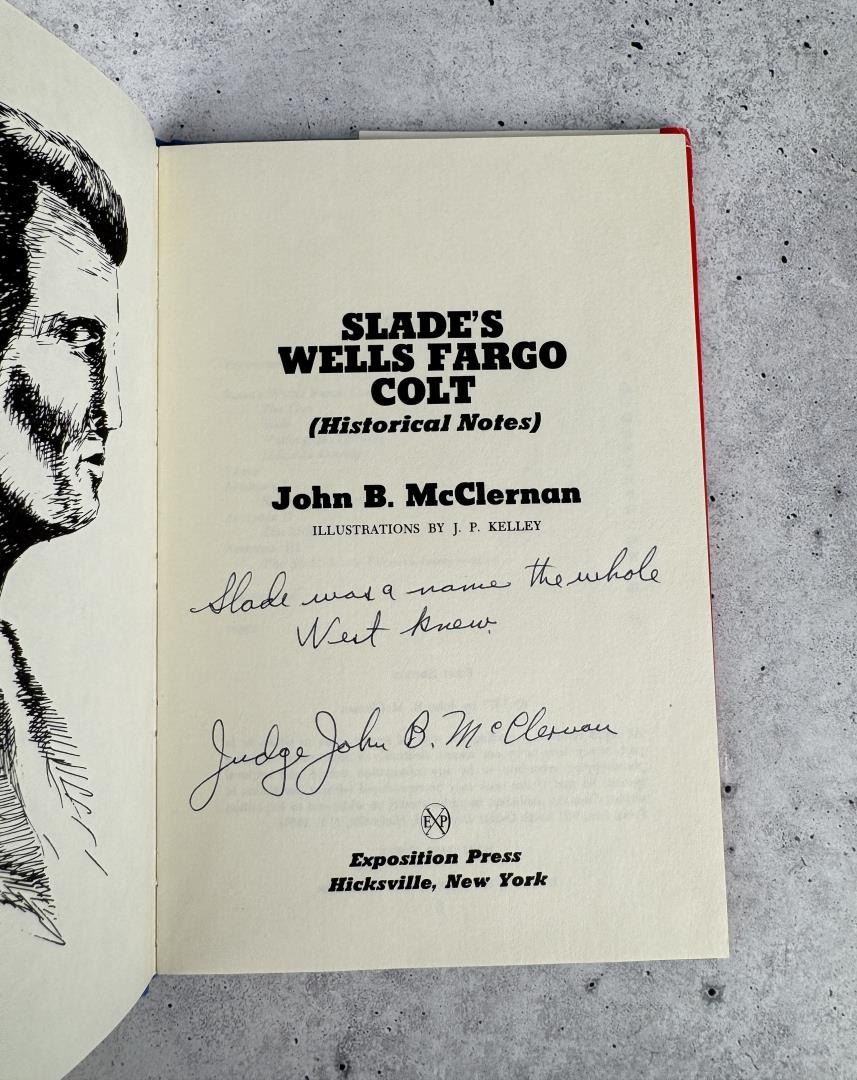 SLADE'S
WELLS FARGO
COLT
(Historical Notes)
John B. McClernan
ILLUSTRATIONS BY J. P. KELLEY
Slade was a name the whole
West knew.
Judge John B. McClernan
EXP
Exposition Press
Hicksville, New York